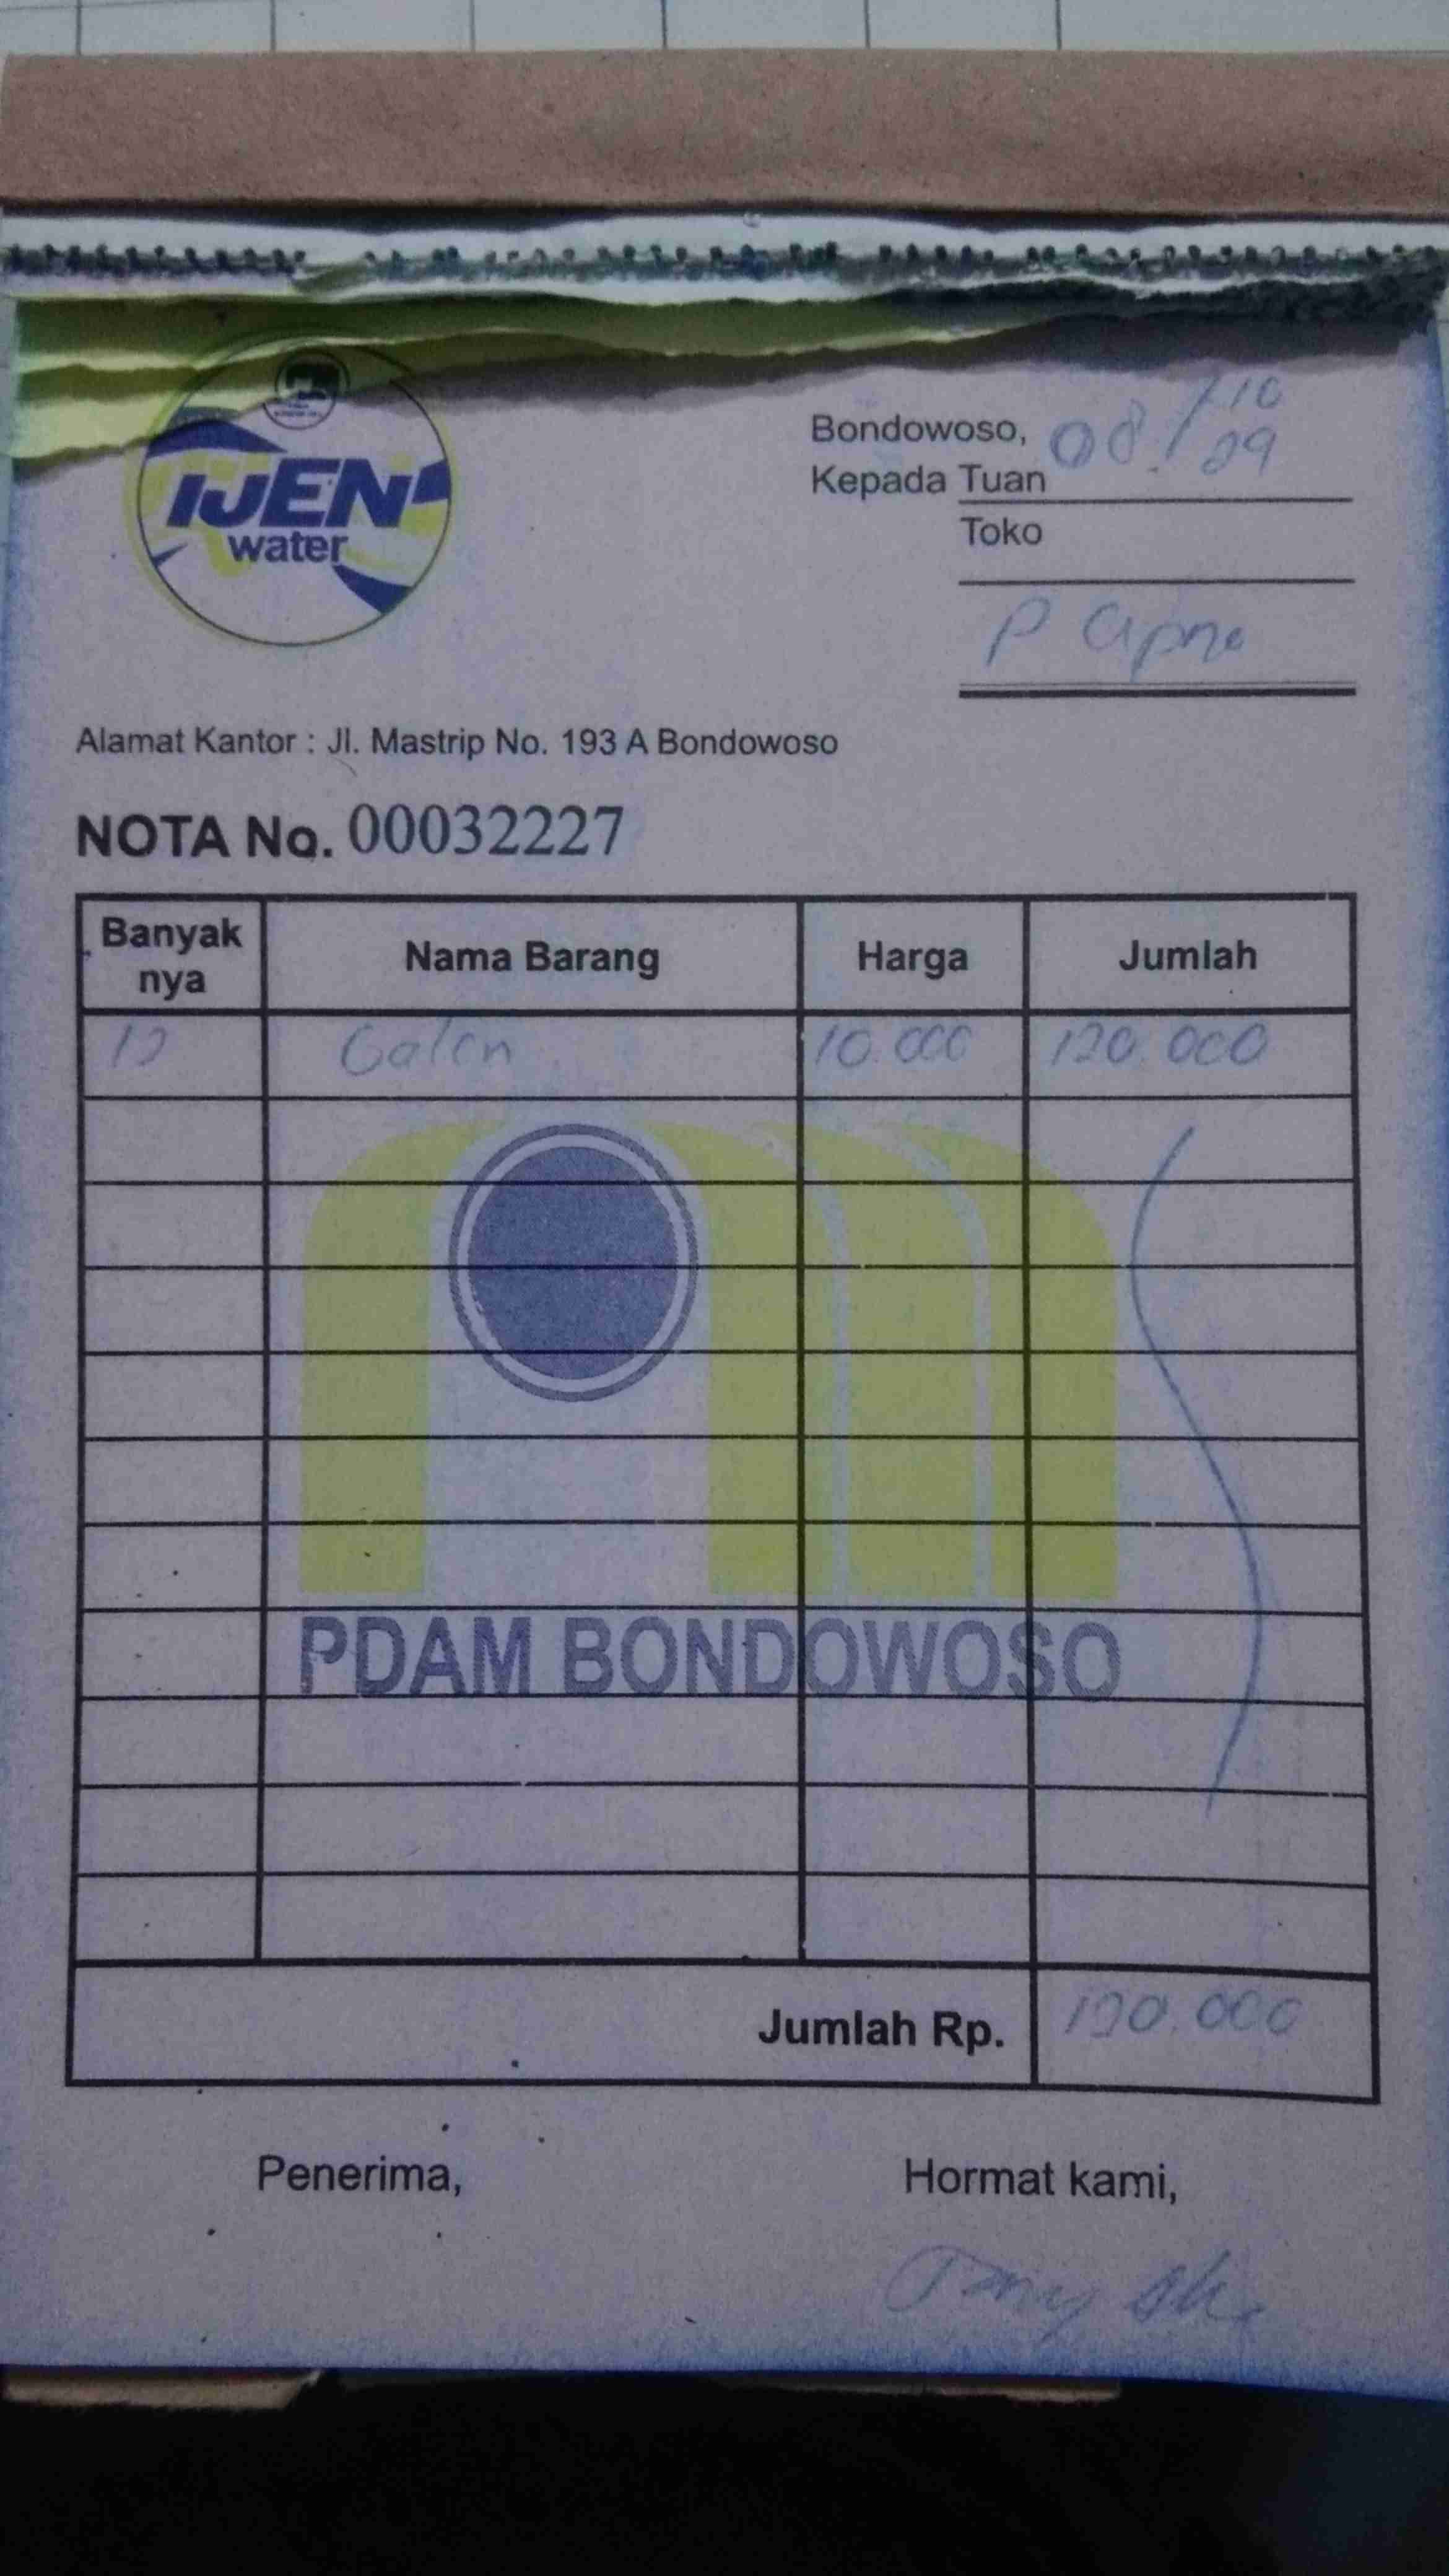 IJEN
water
Bondowoso, 08/10
Kepada Tuan
Toko
P
Alamat Kantor : Jl. Mastrip No. 193 A Bondowoso
NOTA No. 00032227
Banyak nya Nama Barang Harga Jumlah
12 Galon 10.000 120.000
PDAM BONDOWOSO
Jumlah Rp. 120.000
Penerima, Hormat kami,